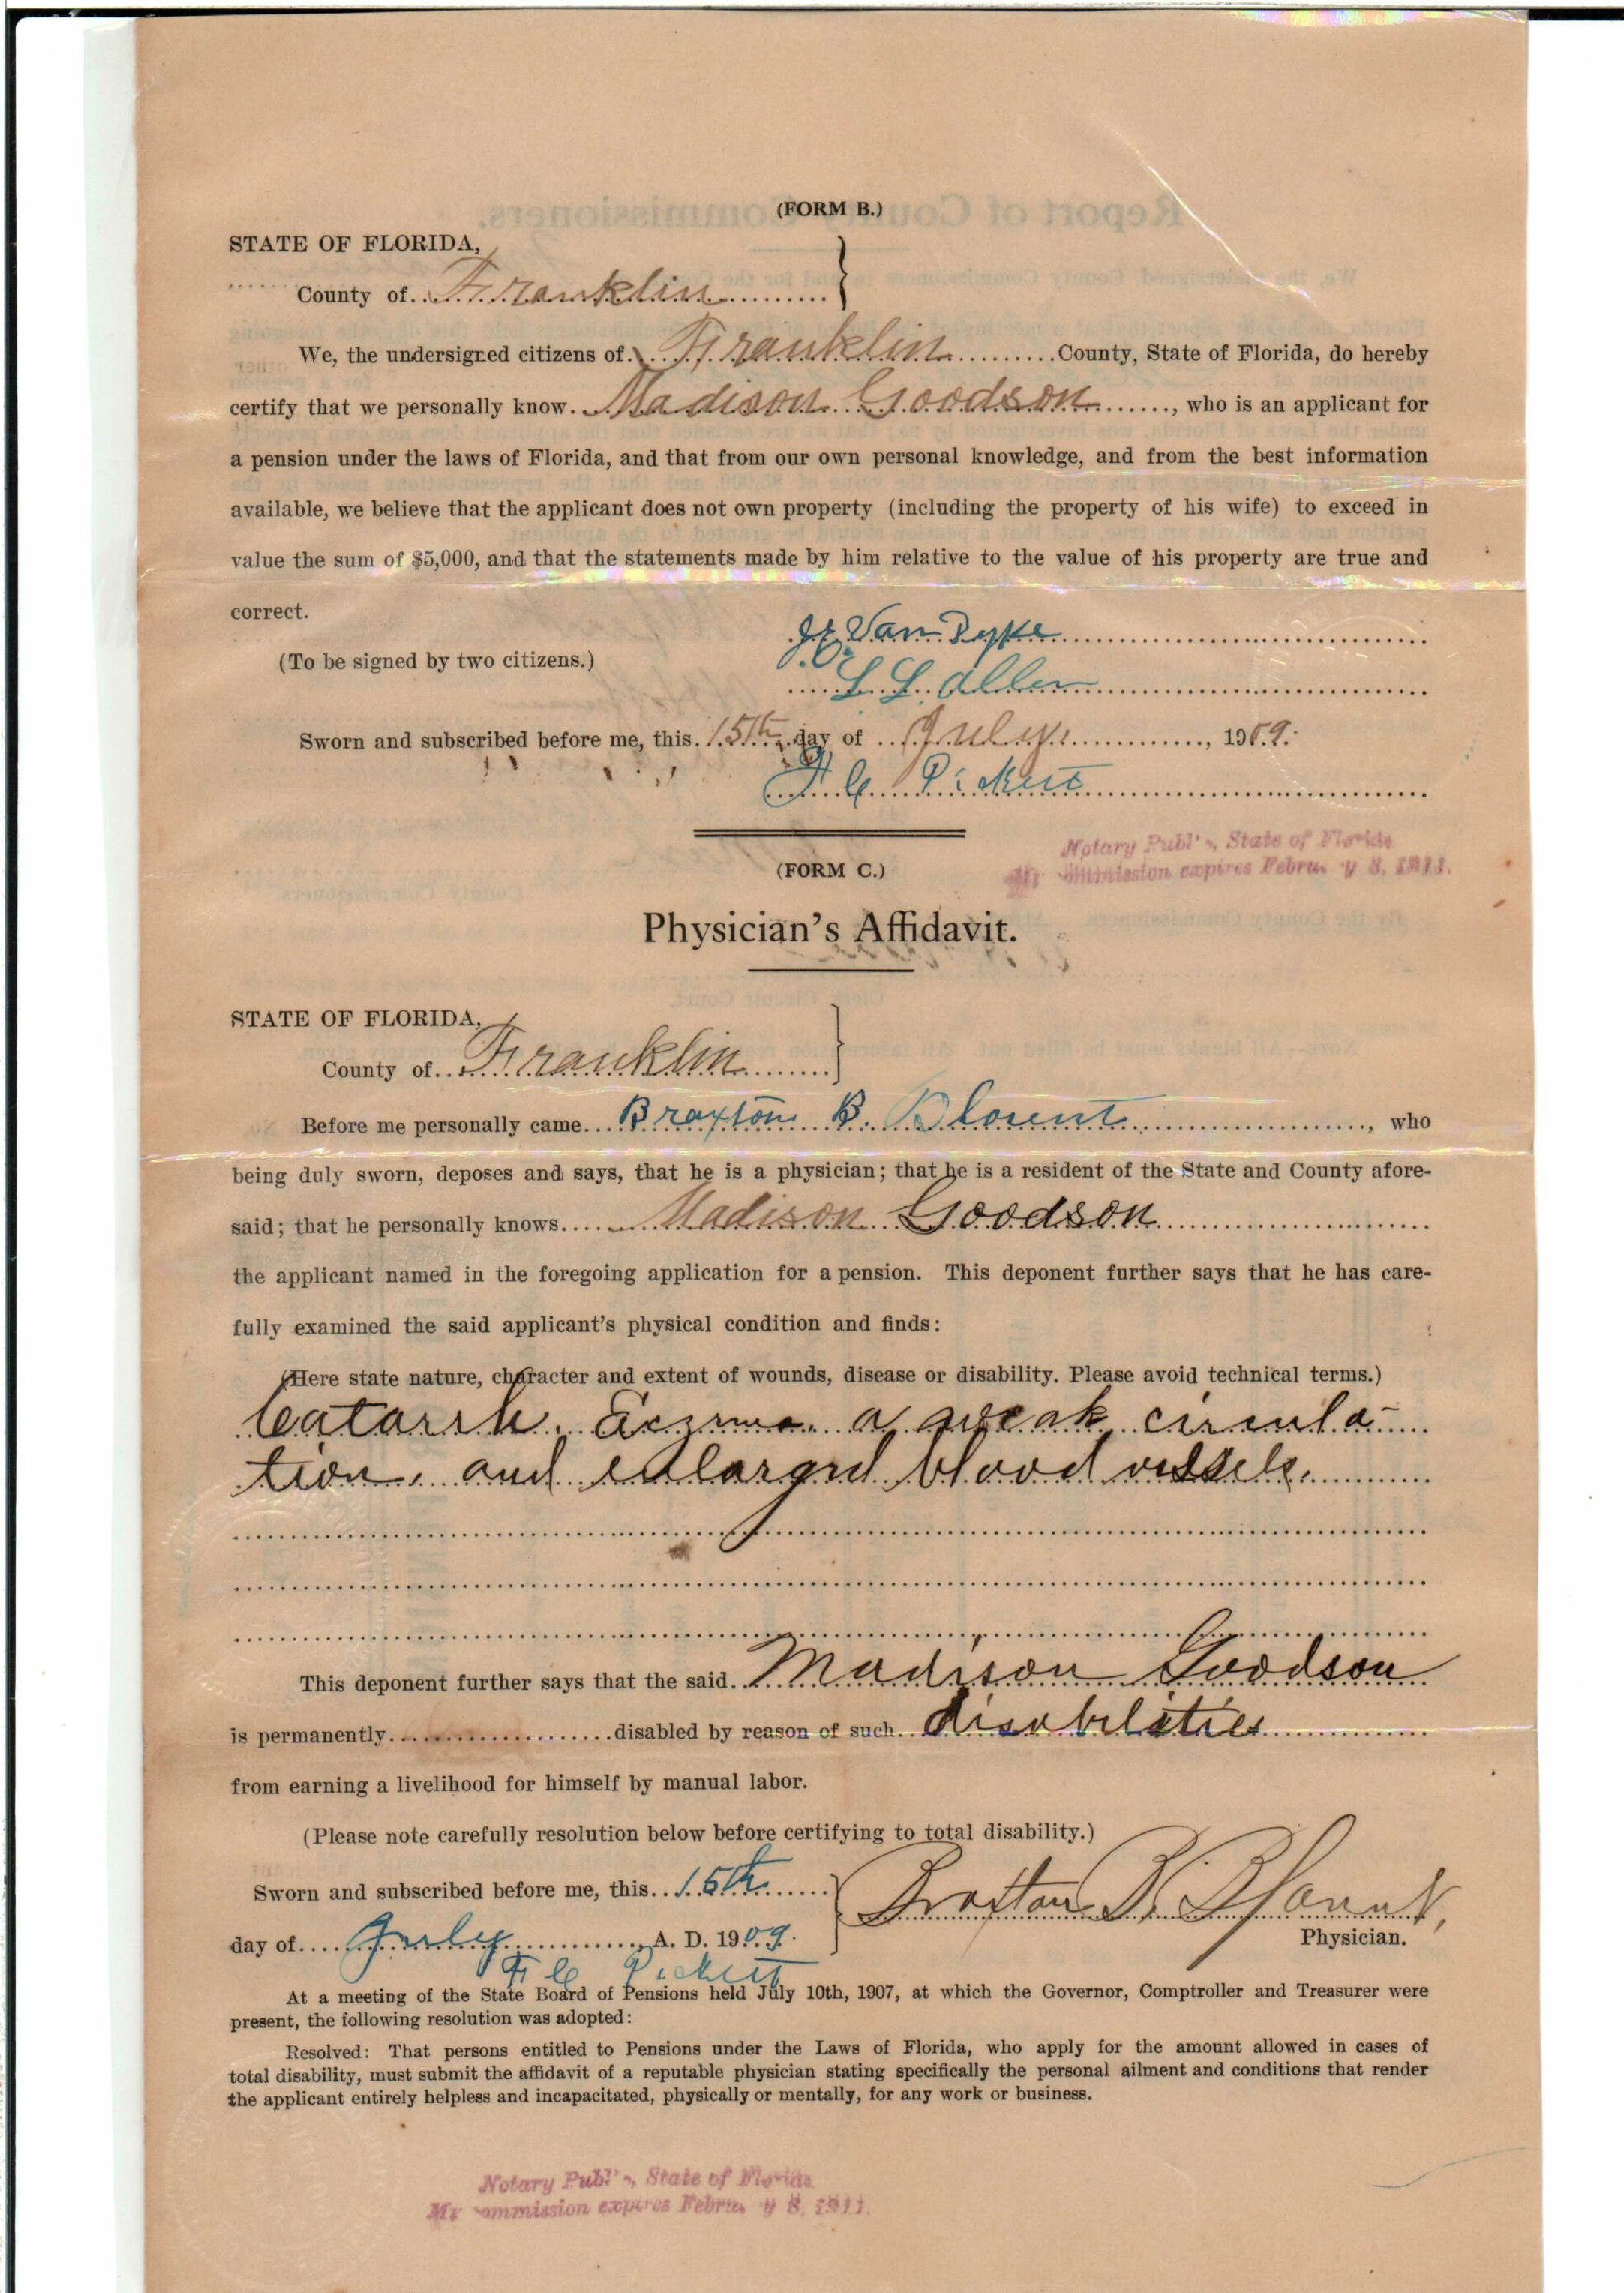 (FORM B.)
STATE OF FLORIDA,
County of Franklin
We, the undersigned citizens of Franklin County, State of Florida, do hereby
certify that we personally know Madison Goodson, who is an applicant for
a pension under the laws of Florida, and that from our own personal knowledge, and from the best information
available, we believe that the applicant does not own property (including the property of his wife) to exceed in
value the sum of $5,000, and that the statements made by him relative to the value of his property are true and
correct.
Van Dyke
(To be signed by two citizens.)
L L. Allen
Sworn and subscribed before me, this 15th day of July, 1909.
Notary Public, State of Florida
My commission expires February 8, 1911.
(FORM C.)
Physician's Affidavit.
STATE OF FLORIDA,
County of Franklin
Before me personally came Braxton B. Blount, who
being duly sworn, deposes and says, that he is a physician; that he is a resident of the State and County afore-
said; that he personally knows Madison Goodson
the applicant named in the foregoing application for a pension. This deponent further says that he has care-
fully examined the said applicant's physical condition and finds:
(Here state nature, character and extent of wounds, disease or disability. Please avoid technical terms.)
Catarrh, Eczema, a weak circula-
tion, and enlarged blood vessels.
This deponent further says that the said Madison Goodson
is permanently disabled by reason of such disabilities
from earning a livelihood for himself by manual labor.
(Please note carefully resolution below before certifying to total disability.)
Sworn and subscribed before me, this 15th
Braxton B. Blount,
day of July A. D. 1909.
Physician.
At a meeting of the State Board of Pensions held July 10th, 1907, at which the Governor, Comptroller and Treasurer were
present, the following resolution was adopted:
Resolved: That persons entitled to Pensions under the Laws of Florida, who apply for the amount allowed in cases of
total disability, must submit the affidavit of a reputable physician stating specifically the personal ailment and conditions that render
the applicant entirely helpless and incapacitated, physically or mentally, for any work or business.
Notary Public, State of Florida
My commission expires February 8, 1911.